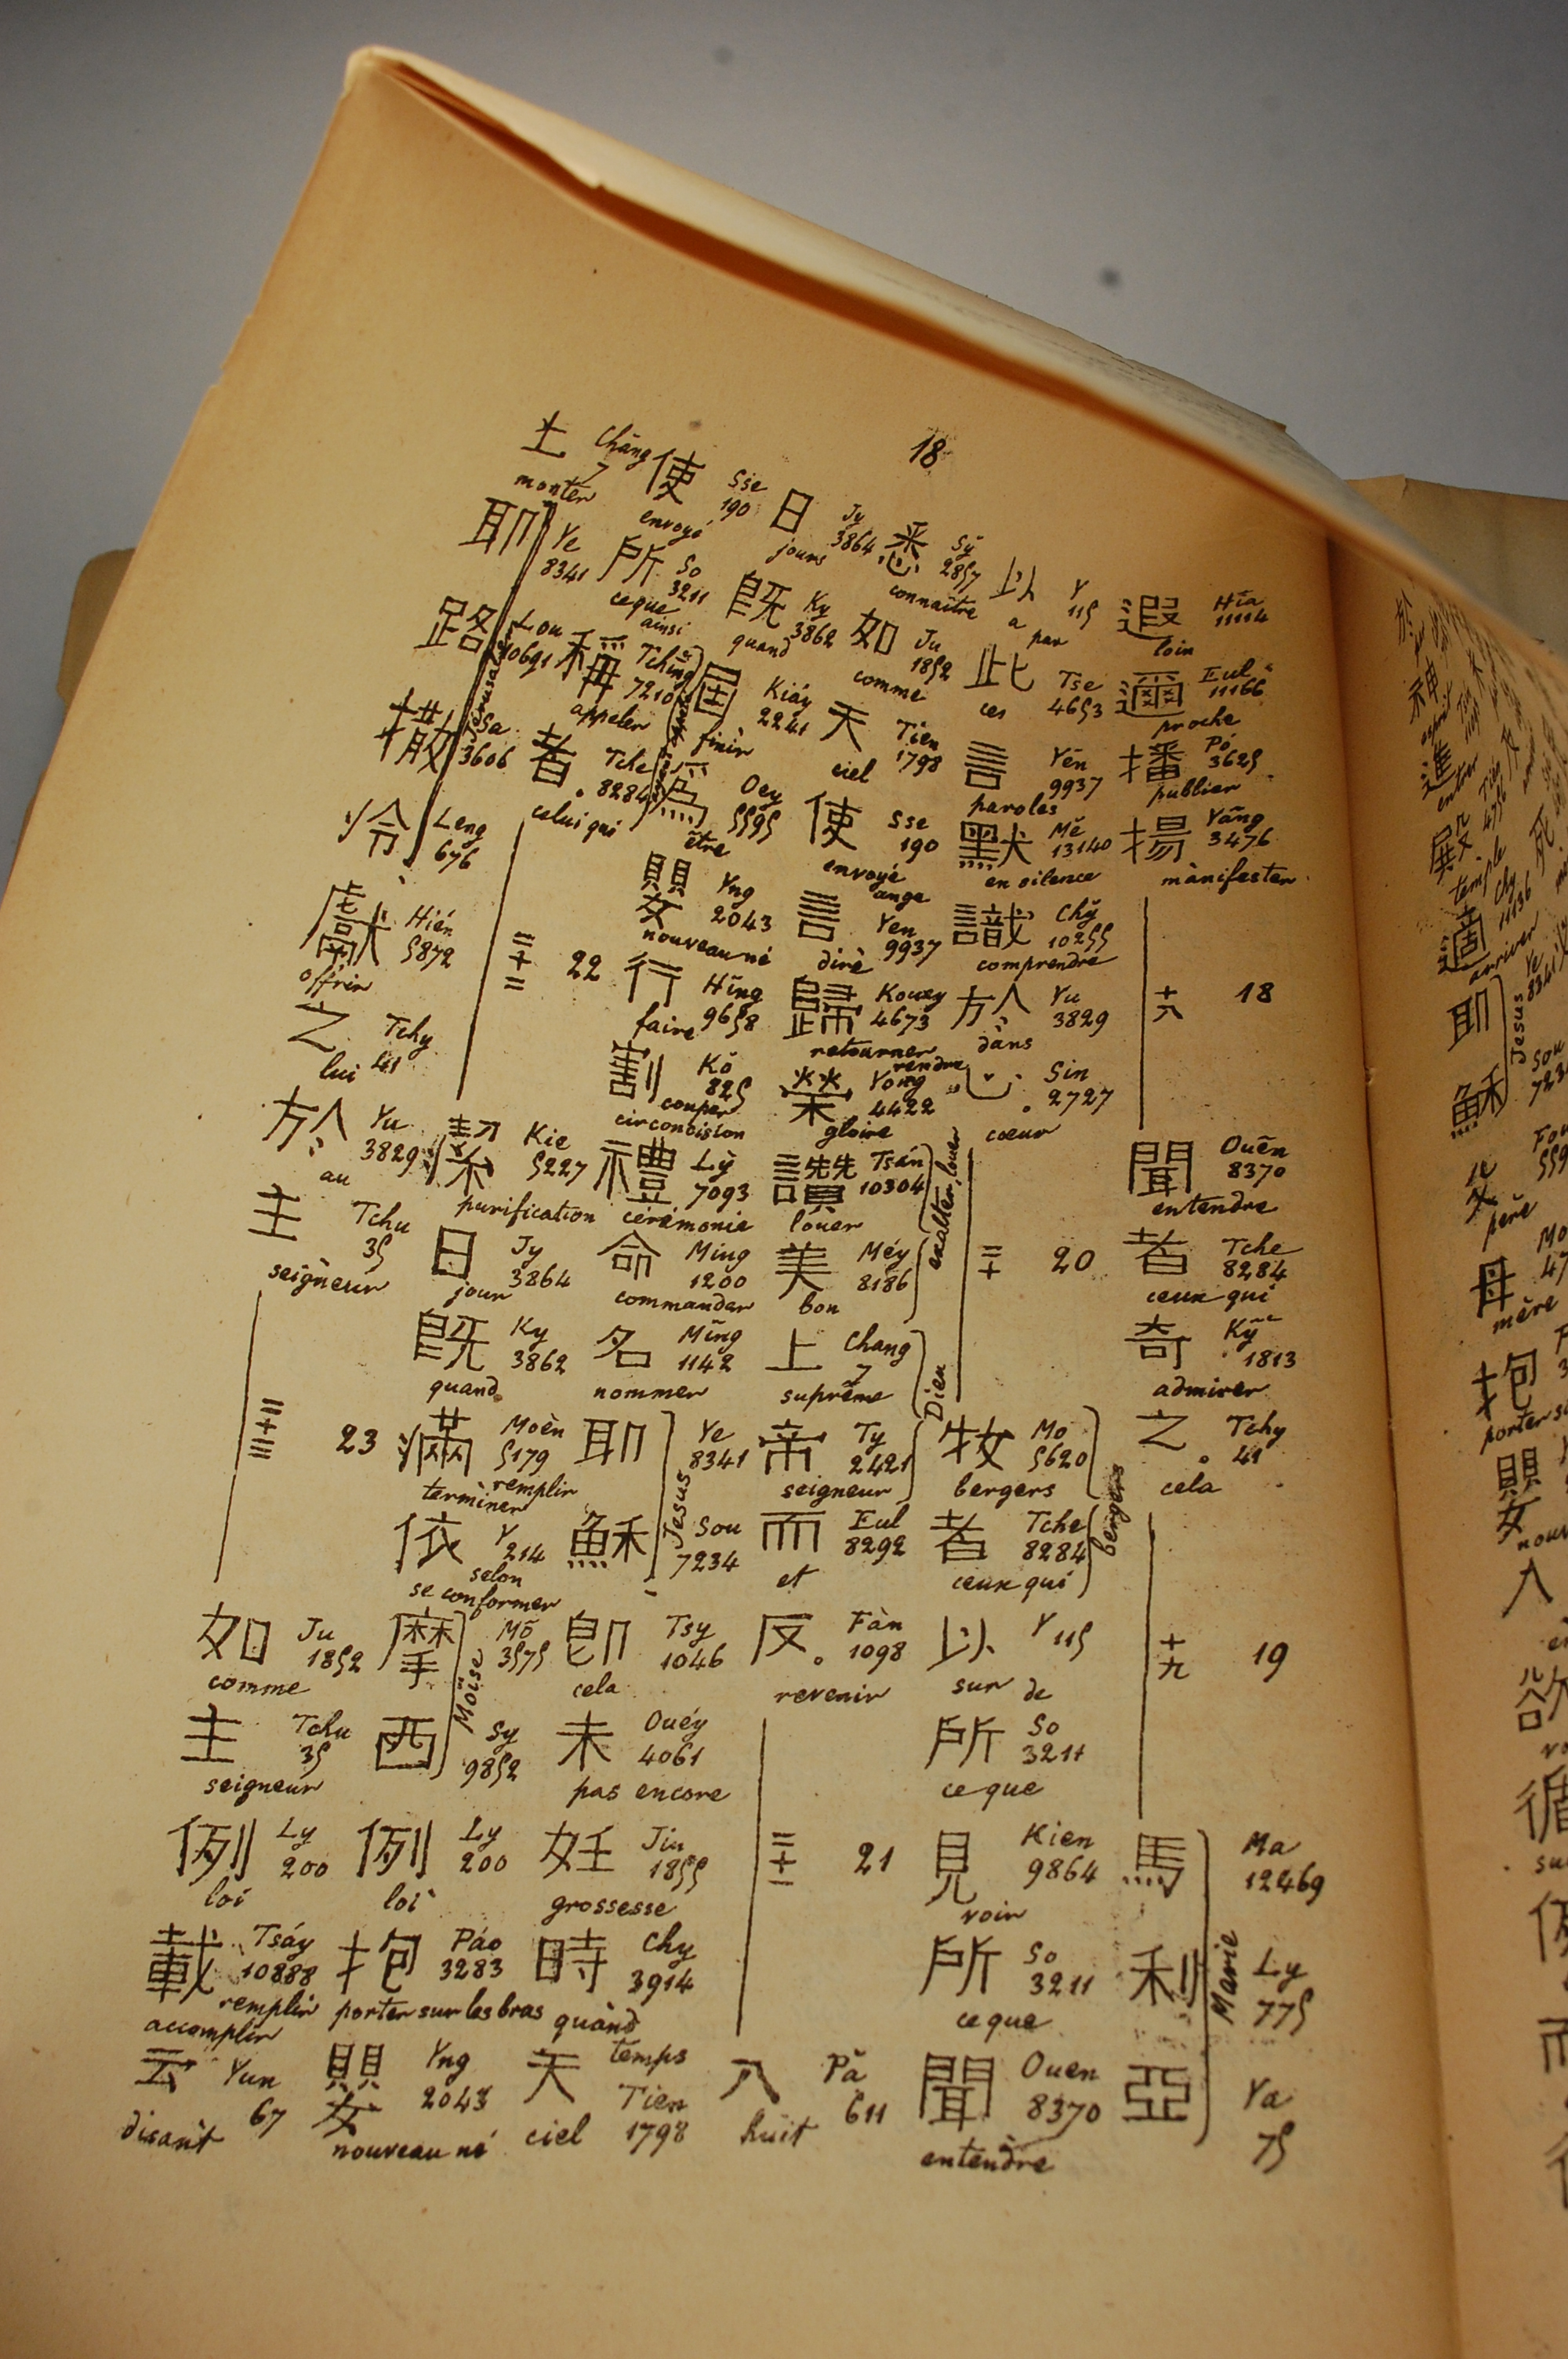 18
遐 Hia 11114 loin
邇 Eul 11166 proche
播 Pó 3625 publier
揚 Yâng 3476 manifester
十八 18
聞 Ouên 8370 entendre
者 Tche 8284 ceux qui
奇 Ky 1813 admirer
之 Tchy 41 cela
十九 19
馬 Ma 12469
利 Ly 775
亞 Ya 75
Marie
以 Y 115 a par
此 Tse 4653 ces
言 Yên 9937 paroles
默 Mĕ 13140 en silence
識 Chy 10255 comprendre
於 Yu 3829 dans
心 Sin 2727 cœur
二十 20
牧 Mo 5620 bergers
者 Tche 8284 ceux qui
bergers
以 Y 115 sur de
所 So 3211 ce que
見 Kien 9864 voir
所 So 3211 ce que
聞 Ouen 8370 entendre
悉 Sy 2857 connaitre
如 Ju 1852 comme
天 Tien 1798 ciel
使 Sse 190 envoyé ange
言 Yen 9937 dire
歸 Kouey 4673 retourner rendre
榮 Yong 4422 gloire
讃 Tsán 10304 louer
美 Méy 8186 bon
exalter, louer
上 Chang 7 suprême
帝 Ty 2421 seigneur
Dieu
而 Eul 8292 et
反 Fàn 1098 revenir
二十一 21
八 Pă 611 huit
日 Jy 3864 jours
既 Ky 3862 quand
屆 Kiáy 2241 finir
為 Oey 5595 être
嬰 Yng 2043 nouveau né
行 Hîng 9658 faire
割 Kŏ 825 couper circoncision
禮 Lỳ 7093 cérémonie
命 Ming 1200 commander
名 Mîng 1142 nommer
耶 Ye 8341
穌 Sou 7234
Jesus
即 Tsy 1046 cela
未 Ouéy 4061 pas encore
妊 Jin 1855 grossesse
時 Chy 3914 quand temps
天 Tien 1798 ciel
使 Sse 190 envoyé
所 So 3211 ce que ainsi
稱 Tching 7210 appeler
者 Tche 8284 celui qui
二十二 22
潔 Kie 5227 purification
日 Jy 3864 jour
既 Ky 3862 quand
滿 Moèn 5179 terminer remplir
依 Y 214 selon se conformer
摩 Mô 3575
西 Sy 9852
Moïse
例 Ly 200 loi
抱 Páo 3283 porter sur les bras
嬰 Yng 2043 nouveau né
上 Chāng 7 monter
耶 Ye 8341
路 Lou 10691
撒 Sa 3606
冷 Leng 676
獻 Hién 5872 offrir
之 Tchy 41 lui
於 Yu 3829 au
主 Tchu 35 seigneur
二十三 23
如 Ju 1852 comme
主 Tchu 35 seigneur
例 Ly 200 loi
載 Tsáy 10888 remplir accomplir
云 Yun 67 disant